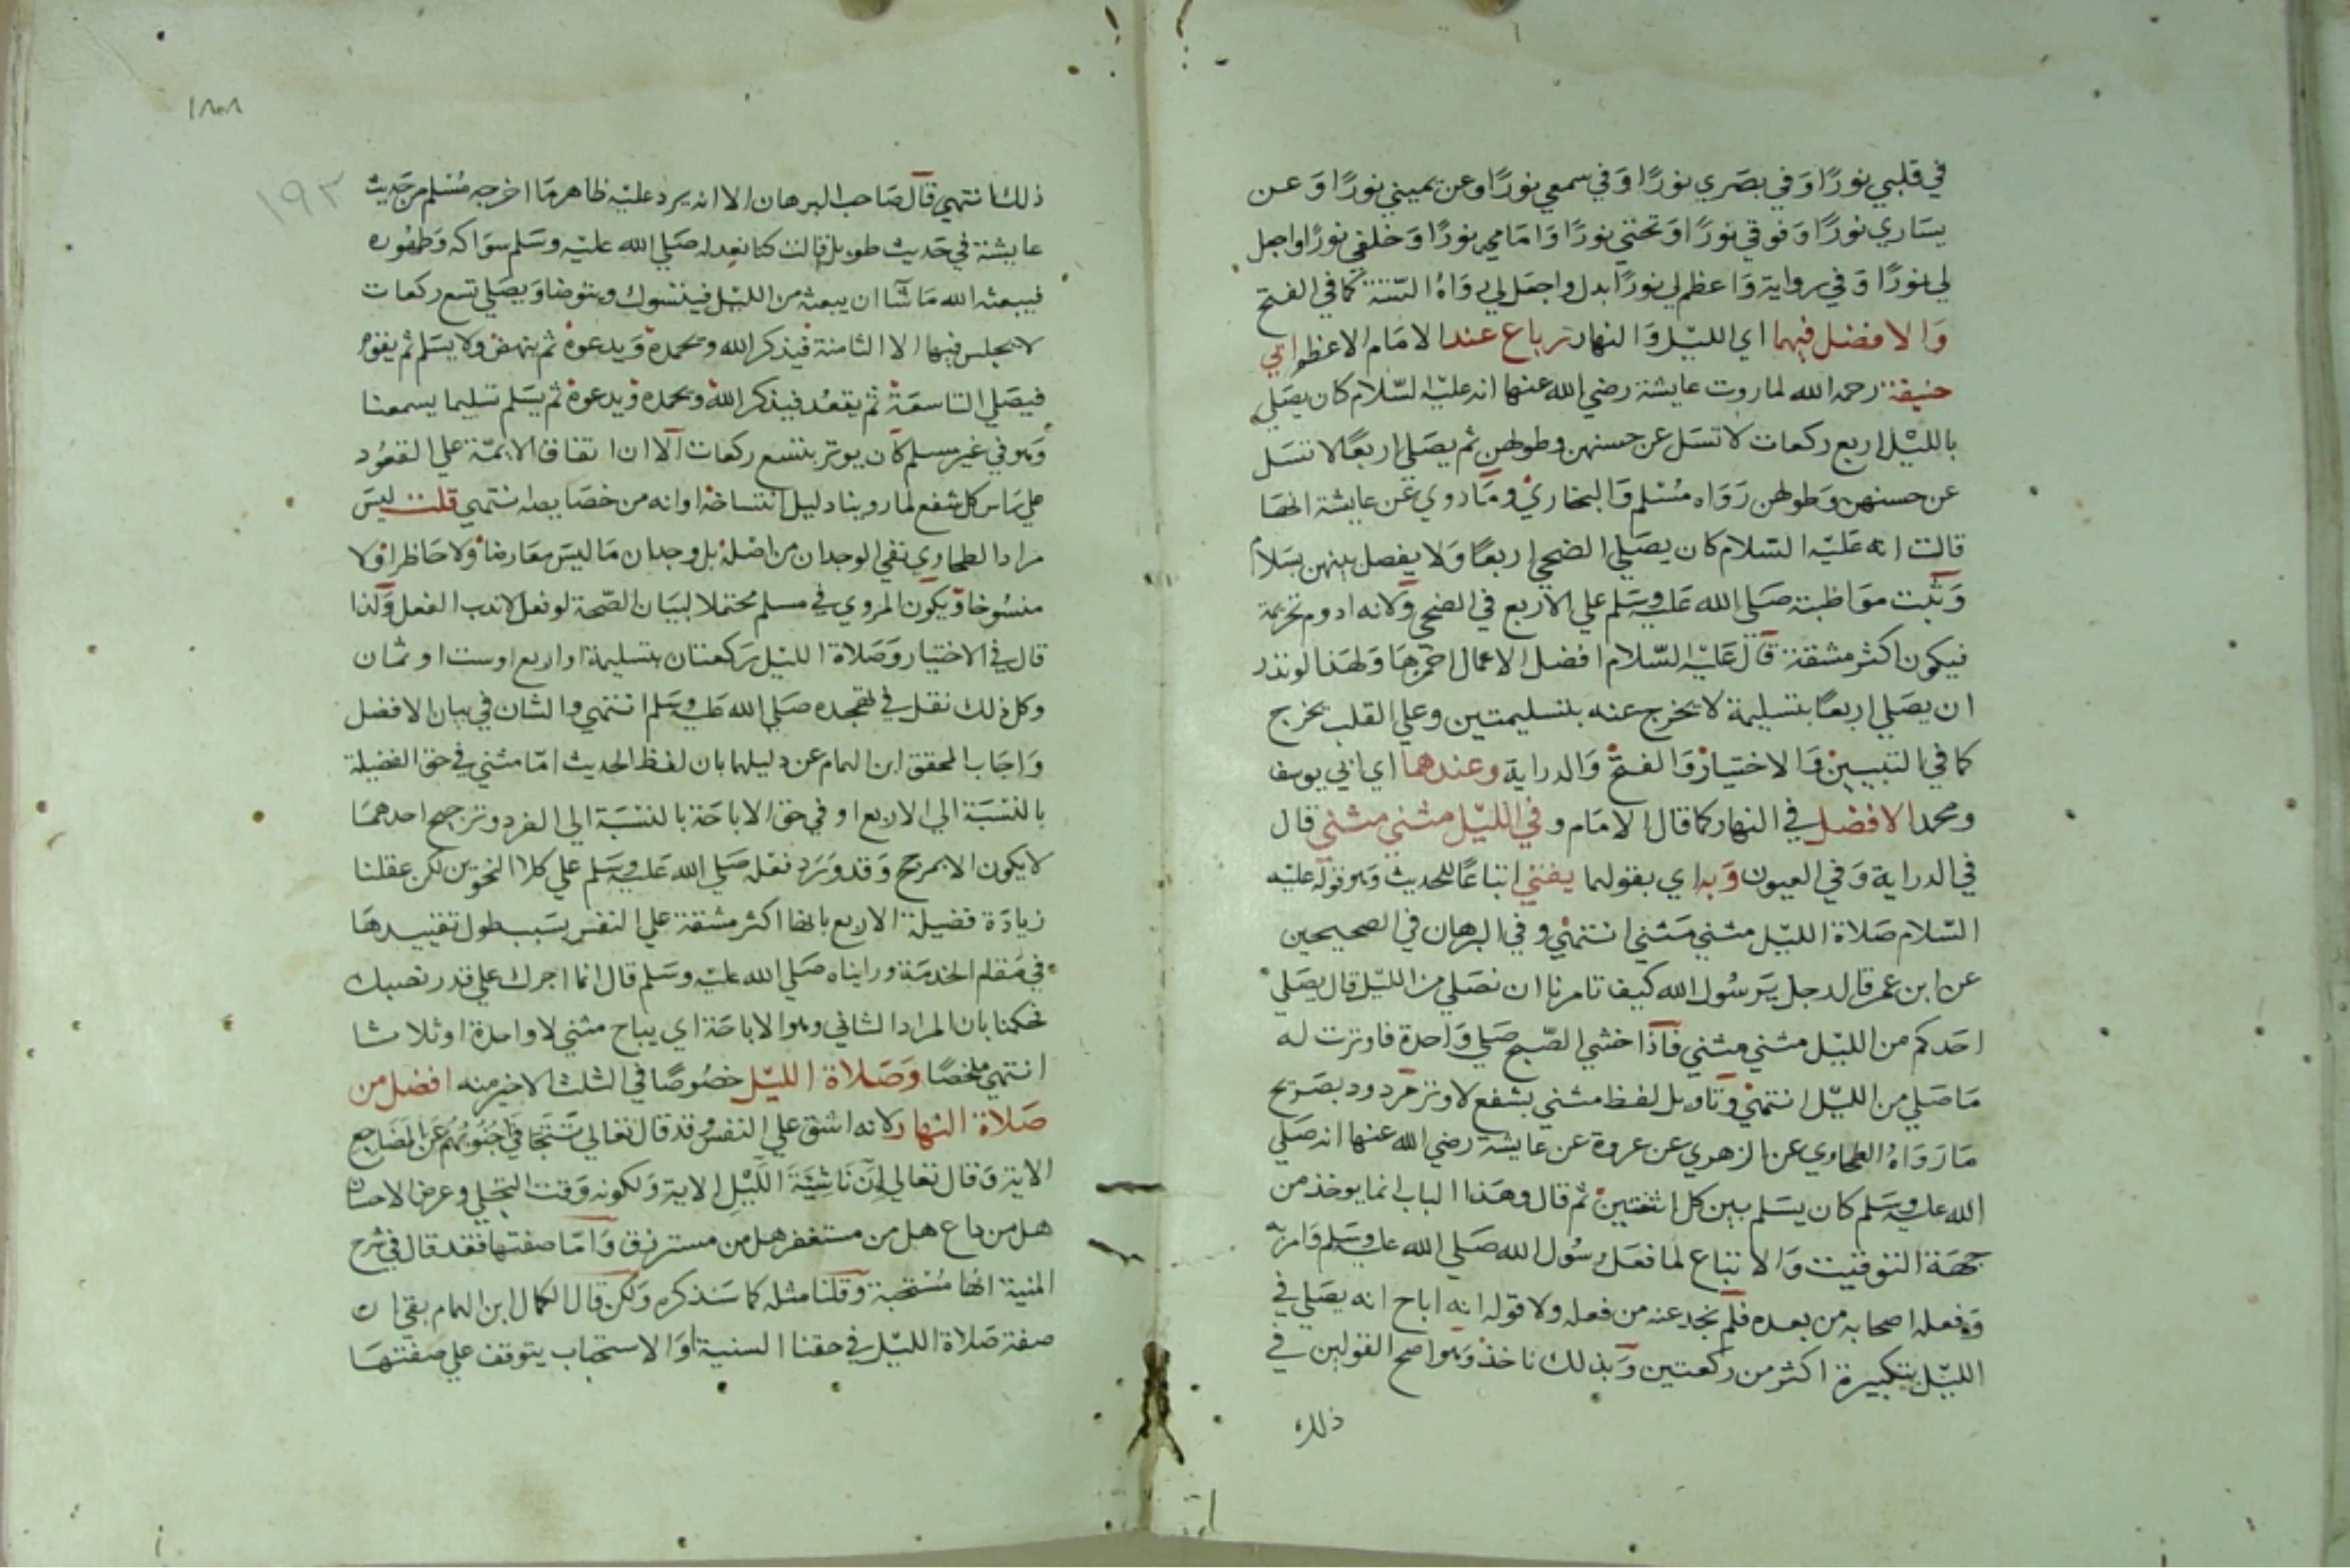 في قلبي نورًا وَفي بصَري نورًا وَفي سمعي نورًا وعن يميني نورًا وَعن
يسَاري نورًا وَفوقي نورًا وَتحتي نورًا وَامَامي نورًا وَخلفي نورًا واجعل
لي نورًا وَفي رواية وَاعظم لي نورًا بدل واجعل لي روَاهُ الستة كما في الفتح
وَالافضل فيهما اي الليْل وَالنهار رباع عند الامَام الاعظم ابي
حنيفة رحمه الله لما روت عايشة رضي الله عنها انه عليْه السّلام كان يصَلي
بالليْل اربع ركعات لا تسَل عن حسنهن وطولهن ثم يصَلي اربعًا لا تسَل
عن حسنهن وَطولهن رَوَاه مُسْلم وَالبخاري ومَا روي عَن عايشة انهَا
قالت انه عَليْه السّلام كان يصَلي الضحى اربعًا وَلا يفصل بينهن بسَلام
وَثبت موَاظبته صَلى الله عَليه وسَلم علي الاربع في الضحى وَلانه ادوم تحريمة
فيكون اكثر مشقة قالَ عَليْه السّلام افضل الاعمال احمزهَا وَلهَذا لو نذر
ان يصَلي اربعًا بتسليمة لا يخرج عنه بتسليمتين وعلي القلب يخرج
كما في التبيين وَالاختيار وَالفتح وَالدراية وعندهما اي ابي يوسف
ومحمد الافضل في النهار كما قال الامَام وفي الليْل مثني مثني قال
في الدراية وَفي العيون وَبه اي بقولهما يفتي اتباعًا للحديث وَهو قوله عليْه
السّلام صَلاة الليْل مثني مَثني انتهي وفي البرهان في الصحيحين
عن ابن عمر قال رجل يَرسُول الله كيف تامرنا ان نصَلي من الليْل قال يصَلي
احَدكم من الليْل مثني مثني فَاذا خشي الصّبح صَلي وَاحدة فاوترت له
مَا صَلي من الليْل انتهي وَتاويل لفظ مثني بشفع لا وتر مَردود بصَريح
مَا رَوَاهُ الطحاوي عن الزهري عن عروة عن عايشة رضي الله عنها انه صَلي
الله عليه وسَلم كان يسَلم بين كل اثنتين ثم قال وهَذا الباب انما يوخذ من
جهَة التوقيت وَالاتباع لما فعَل رسُول الله صَلي الله عليه وسَلم وَامر به
وَفعله اصحابه من بعده فلم نجد عنه من فعله ولا قوله انه اباح انه يصَلي في
الليْل بتكبيرة اكثر من ركعتين وَبذلك ناخذ وَهو اصح القولين في
ذلك
١٨٠٨
١٩٣
ذلك انتهي قالَ صَاحب البرهان الا انه يرد عليْه ظاهر مَا اخرجه مُسْلم من حَديث
عايشة في حَديث طويل قالت كنا نعد له صَلي الله عليْه وسَلم سوَاكه وَطهُوره
فيبعثه الله مَا شآ ان يبعثه من الليْل فيتسوك ويتوضا وَيصَلي تسع ركعات
لا يجلس فيها الا الثامنة فيذكر الله ويحمدهُ وَيدعوهُ ثم ينهض ولا يسَلم ثم يقومُ
فيصَلي التاسعَة ثم يقعُد فيذكر الله ويحمده وَيدعوهُ ثم يسَلم تسليما يسمعنا
وَهو في غير مسلم كان يوتر بتسع ركعات الا ان اتفاق الايمّة علي القعُود
علي رَاس كل شفع لما روينا دليل انتساخه او انه من خصَايصه انتهي قلت ليسَ
مراد الطحاوي نفي الوجدان من اصْله بل وجدان مَا ليسَ معَارضا وَلا حَاظرا وَلا
منسُوخا وَيكون المروي في مسلم محتملا لبيَان الصّحة لو فعل لا ندب الفعل وَلذا
قال في الاختيار وَصَلاة الليْل ركعتان بتسليمة او اربع او ست او ثمان
وكل ذلك نقل في تهجده صَلي الله عليه وسَلم انتهي والشان في بيان الافضل
وَاجَاب المحقق ابن الهمام عن دليلهما بان لفظ الحديث امّا مثني في حق الفضيلة
بالنسْبَة الي الاربع او في حق الاباحَة بالنسْبَة الي الفرد وترجيح احدهمَا
لا يكون الا بمرجح وَقد وَرَد فعله صَلي الله عَليه وسَلم علي كلا النحوين لكن عقلنا
زيادَة فضيلة الاربع بانها اكثر مشقة علي النفس بسَبب طول تقييدهَا
في مَقام الخدمَة ورايناه صَلي الله عليْه وسَلم قال انما اجرك علي قدر نصبك
فحكمنا بان المراد الثاني وهو الاباحَة اي يباح مثني لا واحدة او ثلاثا
انتهي ملخصًا وَصَلاة الليْل خصُوصًا في الثلث الاخير منه افضل من
صَلاة النهار لانه اشق علي النفس وَقد قال تعَالي تَتَجَافَى جُنُوبُهُم عَن المَضَاجِع
الاية وَقال تعَالي اِنَّ نَاشِئَةَ الَّيْلِ الاية وَلكونه وَقت التجَلي وعرض الاحسان
هل من داع هل من مستغفر هل من مسترزق وَامّا صفتها فقد قال في شرح
المنية انهَا مُسْتحبة وَقلنا مثله كما سَنذكره وَلكن قال الكمال ابن الهمام بقي ان
صفة صَلاة الليْل في حقنا السنية اوَ الاستحباب يتوقف علي صفتهَا